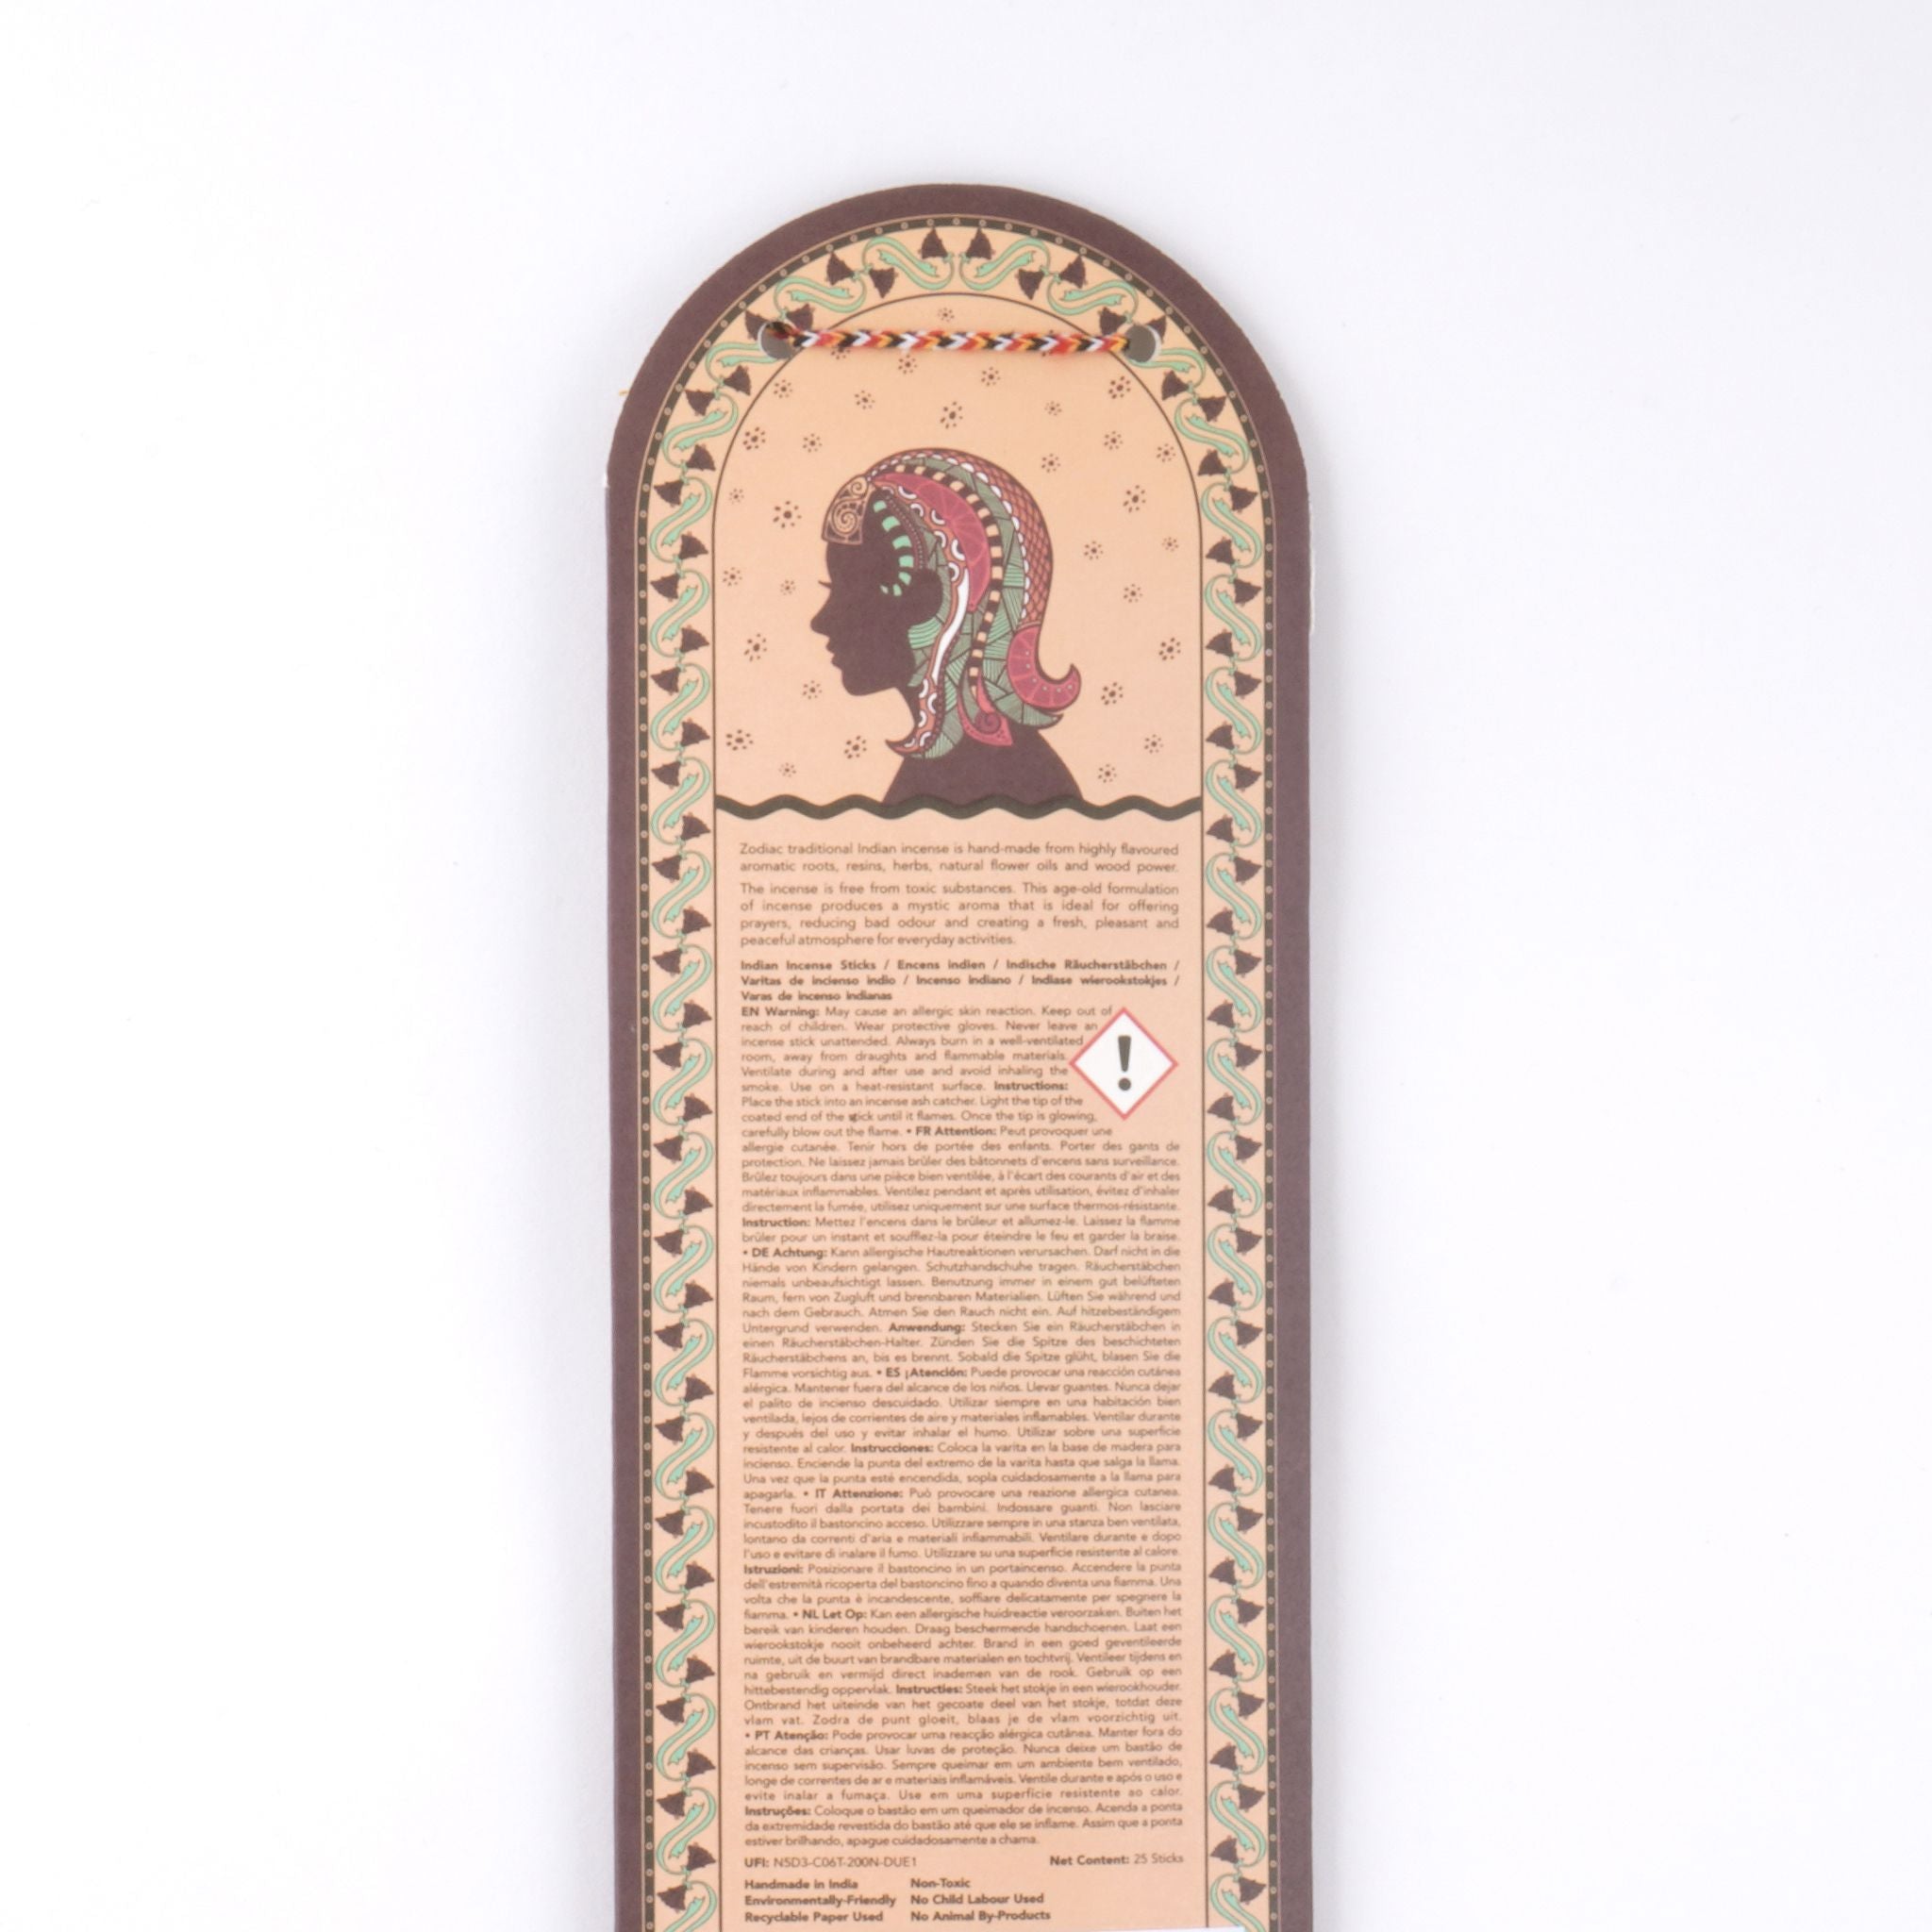 Zodiac traditional Indian incense is hand-made from highly flavoured
aromatic roots, resins, herbs, natural flower oils and wood power.
The incense is free from toxic substances. This age-old formulation
of incense produces a mystic aroma that is ideal for offering
prayers, reducing bad odour and creating a fresh, pleasant and
peaceful atmosphere for everyday activities.
Indian Incense Sticks / Encens indien / Indische Räucherstäbchen /
Varitas de incienso indio / Incenso indiano / Indiase wierookstokjes /
Varas de incenso indianas
EN Warning: May cause an allergic skin reaction. Keep out of
reach of children. Wear protective gloves. Never leave an
incense stick unattended. Always burn in a well-ventilated
room, away from draughts and flammable materials.
Ventilate during and after use and avoid inhaling the
smoke. Use on a heat-resistant surface. Instructions:
Place the stick into an incense ash catcher. Light the tip of the
coated end of the stick until it flames. Once the tip is glowing,
carefully blow out the flame. • FR Attention: Peut provoquer une
allergie cutanée. Tenir hors de portée des enfants. Porter des gants de
protection. Ne laissez jamais brûler des bâtonnets d'encens sans surveillance.
Brûlez toujours dans une pièce bien ventilée, à l'écart des courants d'air et des
matériaux inflammables. Ventilez pendant et après utilisation, évitez d'inhaler
directement la fumée, utilisez uniquement sur une surface thermos-résistante.
Instruction: Mettez l'encens dans le brûleur et allumez-le. Laissez la flamme
brûler pour un instant et soufflez-la pour éteindre le feu et garder la braise.
• DE Achtung: Kann allergische Hautreaktionen verursachen. Darf nicht in die
Hände von Kindern gelangen. Schutzhandschuhe tragen. Räucherstäbchen
niemals unbeaufsichtigt lassen. Benutzung immer in einem gut belüfteten
Raum, fern von Zugluft und brennbaren Materialien. Lüften Sie während und
nach dem Gebrauch. Atmen Sie den Rauch nicht ein. Auf hitzebeständigem
Untergrund verwenden. Anwendung: Stecken Sie ein Räucherstäbchen in
einen Räucherstäbchen-Halter. Zünden Sie die Spitze des beschichteten
Räucherstäbchens an, bis es brennt. Sobald die Spitze glüht, blasen Sie die
Flamme vorsichtig aus. • ES ¡Atención: Puede provocar una reacción cutánea
alérgica. Mantener fuera del alcance de los niños. Llevar guantes. Nunca dejar
el palito de incienso descuidado. Utilizar siempre en una habitación bien
ventilada, lejos de corrientes de aire y materiales inflamables. Ventilar durante
y después del uso y evitar inhalar el humo. Utilizar sobre una superficie
resistente al calor. Instrucciones: Coloca la varita en la base de madera para
incienso. Enciende la punta del extremo de la varita hasta que salga la llama.
Una vez que la punta esté encendida, sopla cuidadosamente a la llama para
apagarla. • IT Attenzione: Può provocare una reazione allergica cutanea.
Tenere fuori dalla portata dei bambini. Indossare guanti. Non lasciare
incustodito il bastoncino acceso. Utilizzare sempre in una stanza ben ventilata,
lontano da correnti d'aria e materiali infiammabili. Ventilare durante e dopo
l'uso e evitare di inalare il fumo. Utilizzare su una superficie resistente al calore.
Istruzioni: Posizionare il bastoncino in un portaincenso. Accendere la punta
dell'estremità ricoperta del bastoncino fino a quando diventa una fiamma. Una
volta che la punta è incandescente, soffiare delicatamente per spegnere la
fiamma. • NL Let Op: Kan een allergische huidreactie veroorzaken. Buiten het
bereik van kinderen houden. Draag beschermende handschoenen. Laat een
wierookstokje nooit onbeheerd achter. Brand in een goed geventileerde
ruimte, uit de buurt van brandbare materialen en tochtvrij. Ventileer tijdens en
na gebruik en vermijd direct inademen van de rook. Gebruik op een
hittebestendig oppervlak. Instructies: Steek het stokje in een wierookhouder.
Ontbrand het uiteinde van het gecoate deel van het stokje, totdat deze
vlam vat. Zodra de punt gloeit, blaas je de vlam voorzichtig uit.
• PT Atenção: Pode provocar uma reacção alérgica cutânea. Manter fora do
alcance das crianças. Usar luvas de proteção. Nunca deixe um bastão de
incenso sem supervisão. Sempre queimar em um ambiente bem ventilado,
longe de correntes de ar e materiais inflamáveis. Ventile durante e após o uso e
evite inalar a fumaça. Use em uma superfície resistente ao calor.
Instruções: Coloque o bastão em um queimador de incenso. Acenda a ponta
da extremidade revestida do bastão até que ele se inflame. Assim que a ponta
estiver brilhando, apague cuidadosamente a chama.
UFI: N5D3-C06T-200N-DUE1 Net Content: 25 Sticks
Handmade in India Non-Toxic
Environmentally-Friendly No Child Labour Used
Recyclable Paper Used No Animal By-Products